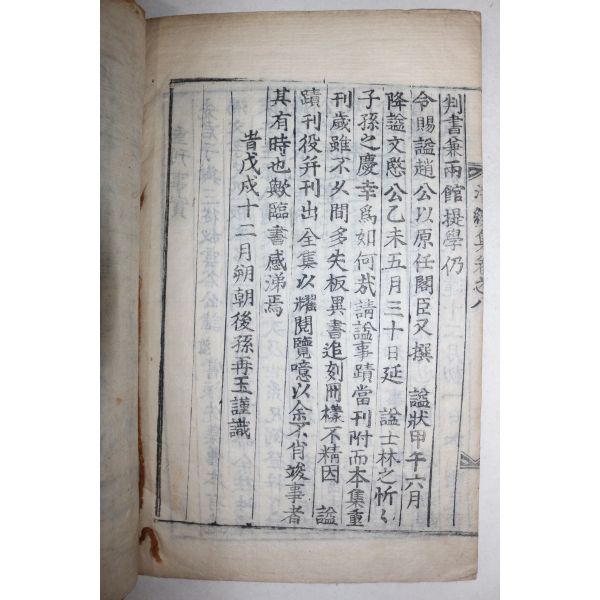 判書兼兩館提學仍
令賜謚趙公以原任閣臣又撰 謚狀甲午六月
降謚文愍公乙未五月三十日延 謚士林之忻々
子孫之慶幸爲如何哉請謚事蹟當刊附而本集重
刊歲雖不久間多失板異書追刻冊樣不精因 謚
蹟刊役并刊出全集以耀閱覽噫以余不肖竣事者
其有時也歟臨書感涕焉
旹戊戌十二月朔朝後孫再玉謹識
集卷之八